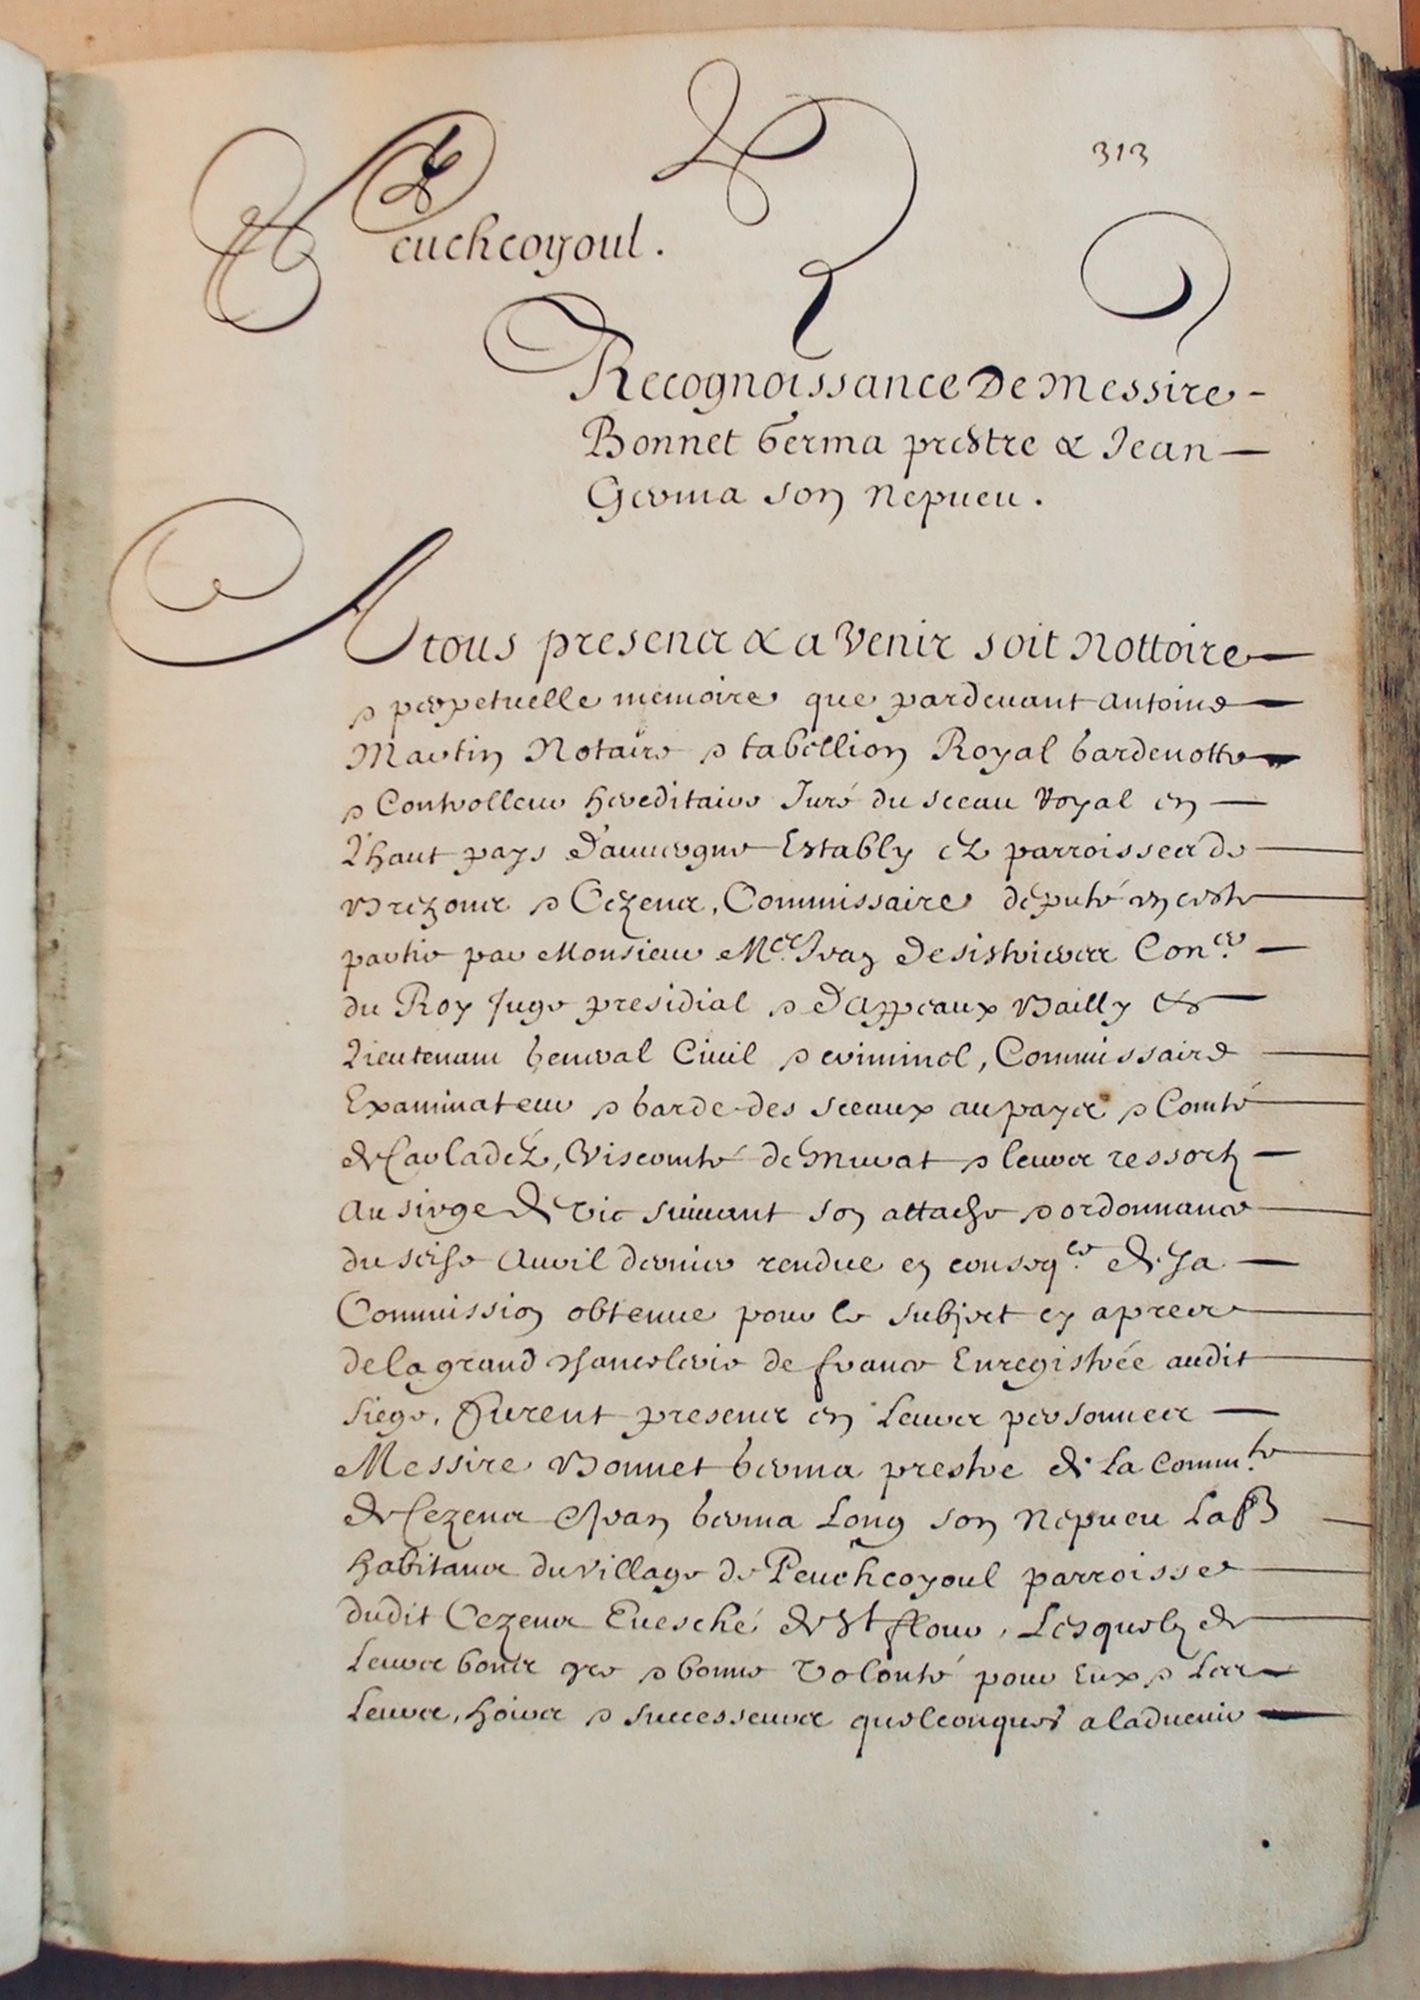 313
Peuchcoyoul.
Recognoissance De Messire
Bonnet Germa prestre & Jean
Germa son Nepueu.
A tous presens & a Venir soit Nottoire
& perpetuelle memoire que pardeuant Antoine
Martin Notaire & tabellion Royal gardenotte
& Controlleur hereditaire Juré du sceau Royal en
L'haut pays d'auuergne Estably ez parroisses de
Brezons & Cezens, Commissaire deputé en ceste
partie par Monsieur Me. Jean Desistrieres Con.er
du Roy Juge presidial & d'Appeaux Bailly &
Lieutenant general Ciuil & criminel, Commissaire
Examinateur & garde des sceaux au pays & Comté
de Carladéz, Viscomté de Murat & leurs ressortz
Au siege de Vic suiuant son attache & ordonnance
du seise Auril dernier rendue en conseq.ce de sa
Commission obtenue pour le subject cy apres
de la grand chancelerie de france Enregistrée audit
siege, furent presens en leurs personnes
Messire Bonnet germa prestre de la Comm.té
de Cezens Jean germa Long son Nepueu Lab
habitans du village de Peuchcoyoul parroisse
dudit Cezens Euesché de St flour, Lesquelz de
leurs bons gre & bonne Volonté pour Eux & les
leurs, hoirs & successeurs quelconques a laduenir